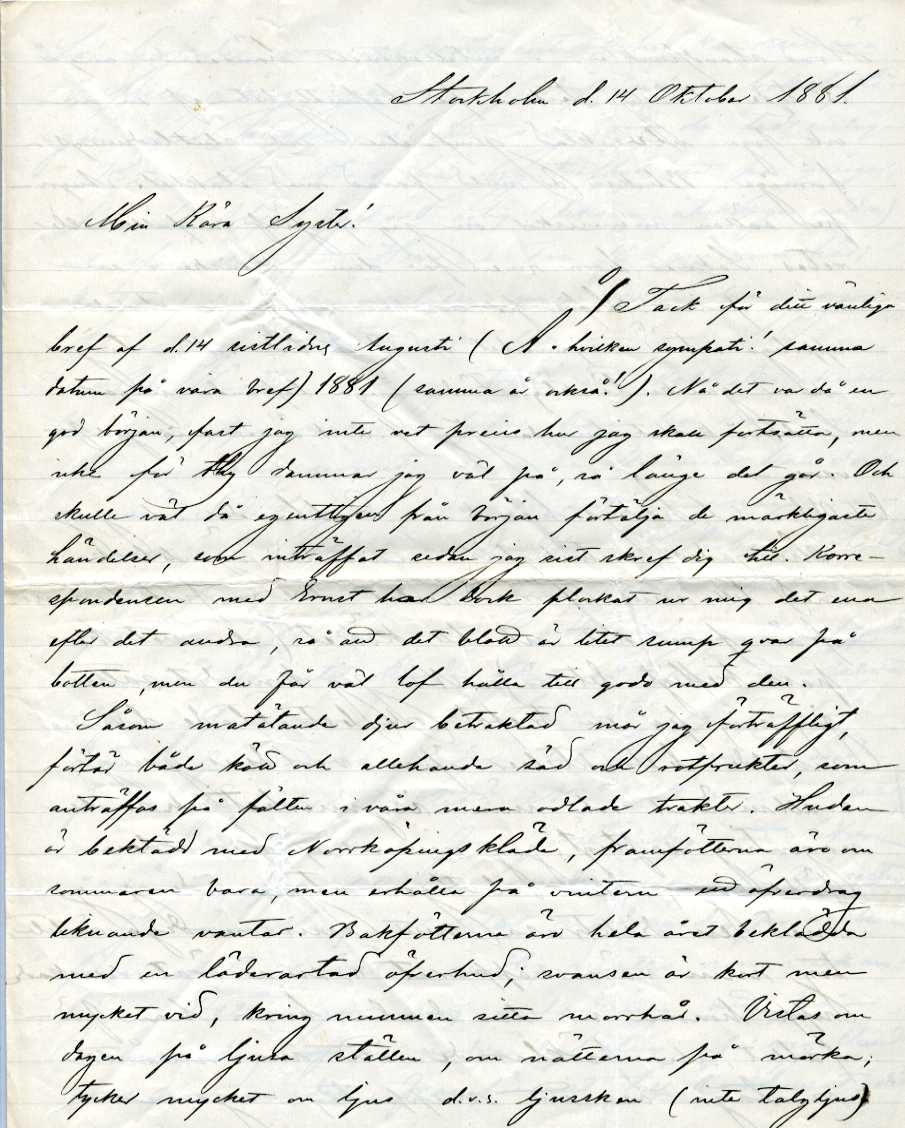 Stockholm d. 14 Oktober 1881.
Min Kära Syster!
Tack för ditt vänliga
bref af d. 14 sistlidne Augusti (Å hvilken sympati! samma
datum på våra bref) 1881 (samma år också!). Nå det var då en
god början, fast jag inte vet precis hur jag skall fortsätta, men
icke för thy dammar jag väl på, så länge det går. Och
skulle väl då egentligen från början förtälja de märkligaste
händelser, som inträffat sedan jag sist skref dig till. Korre-
spondensen med Ernst har dock plockat ur mig det ena
efter det andra, så att det blott är litet sump qvar på
botten, men du får väl lof hålla till godo med den.
Såsom matätande djur betraktad mår jag förträffligt,
förtär både kött och allehanda säd och rotfrukter, som
anträffas på fälten i våra mera odlade trakter. Huden
är beklädd med Norrköpingskläde, framfötterna äro om
sommaren bara, men erhålla på vintern ett öfverdrag
liknande vantar. Bakfötterna äro hela året beklädda
med en läderartad öfverhud; svansen är kort men
mycket vid, kring munnen sitta morrhår. Vistas om
dagen på ljusa ställen, om nätterna på mörka;
tycker mycket om ljus d.v.s. ljussken (inte talgljus)